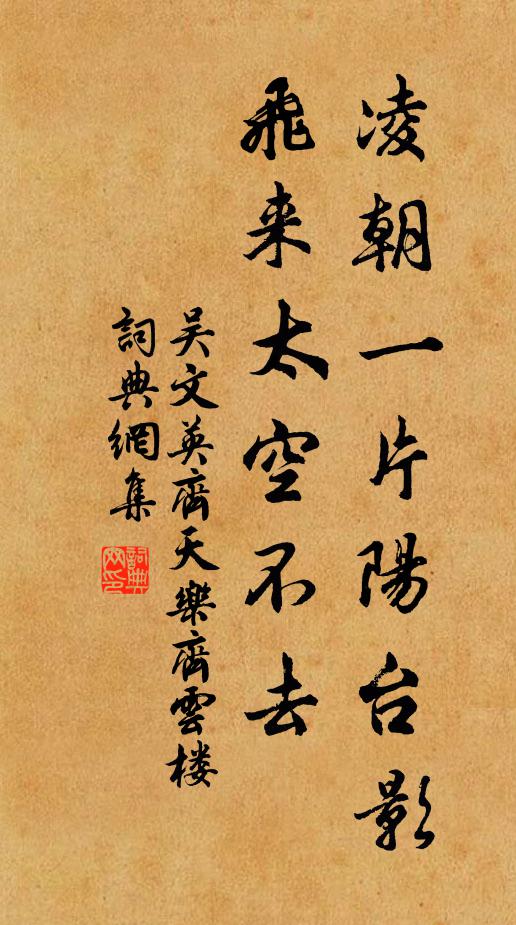 凌朝一片陽台影
飛来太空不去
吴文英齊天樂齊雲楼
詞典網集
詞典网印